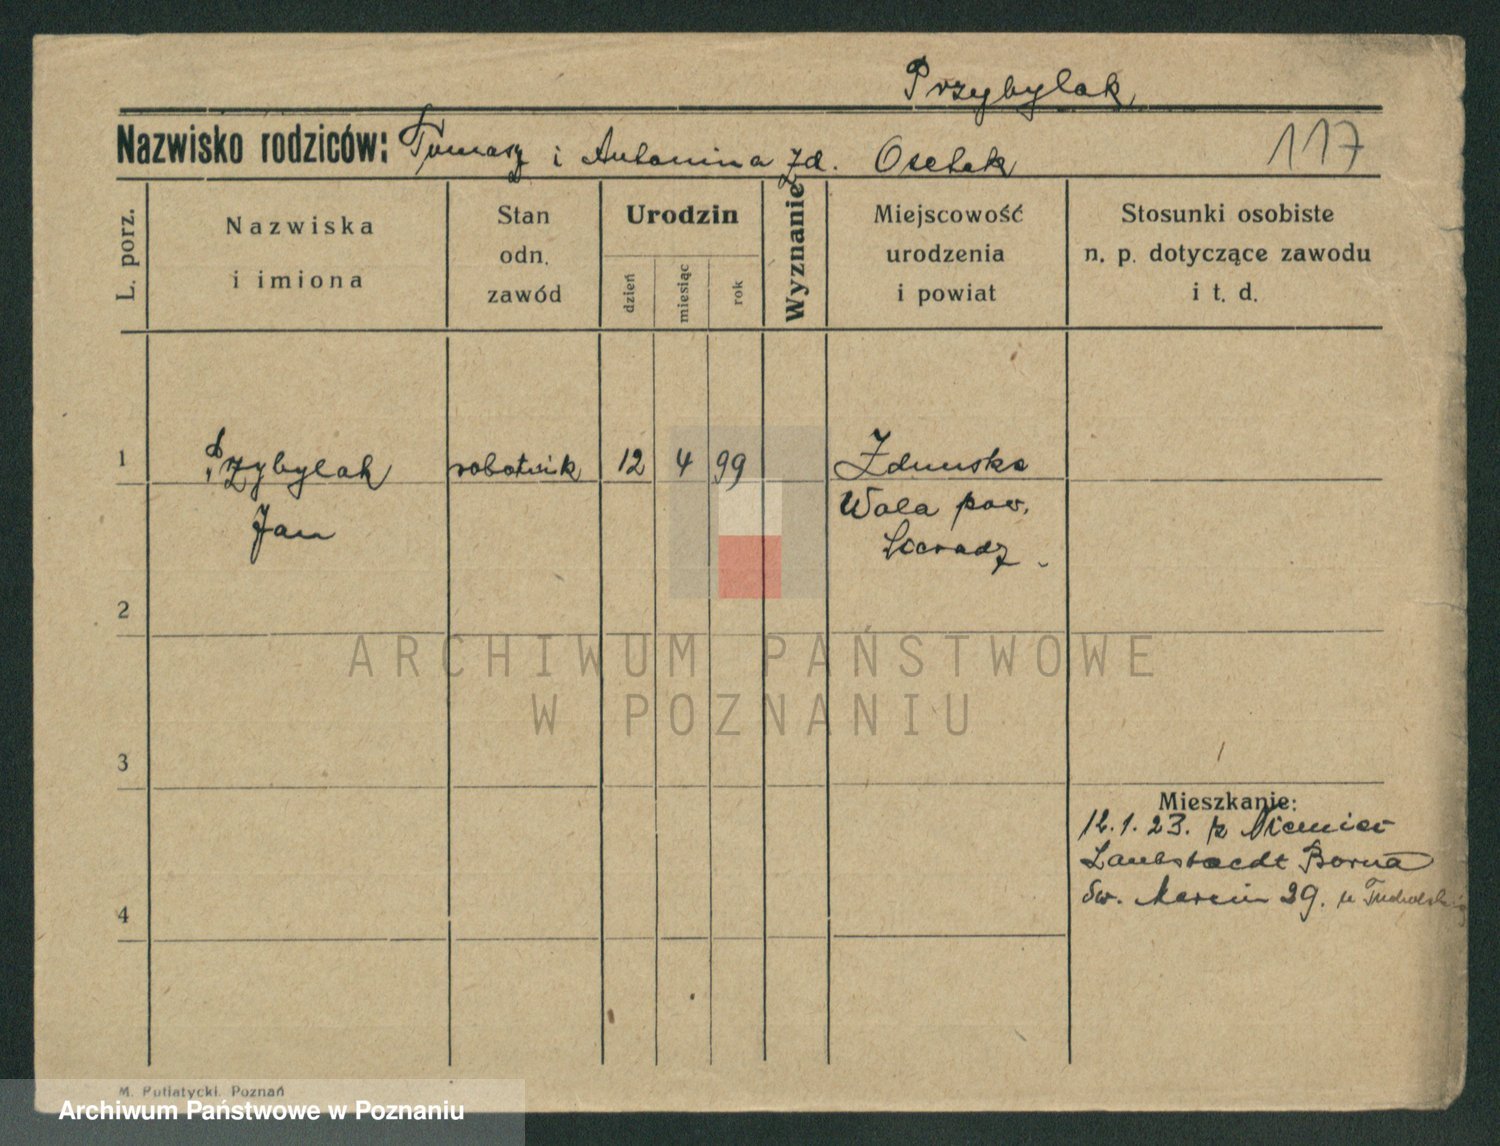 Przybylak,
Nazwisko rodziców: Tomasz i Antonina zd. Osetek 117
L. porz.
Nazwiska
i imiona
Stan
odn.
zawód
Urodzin
dzień
miesiąc
rok
Wyznanie
Miejscowość
urodzenia
i powiat
Stosunki osobiste
n. p. dotyczące zawodu
i t. d.
1 Przybylak robotnik 12 4 99 Zduńska
Jan Wola pow.
Sieradz
2
ARCHIWUM PAŃSTWOWE
W POZNANIU
3
Mieszkanie:
12.1.23. z Niemiec
Borna
4 Św. Marcin 29. u
M. Putiatycki. Poznań
Archiwum Państwowe w Poznaniu